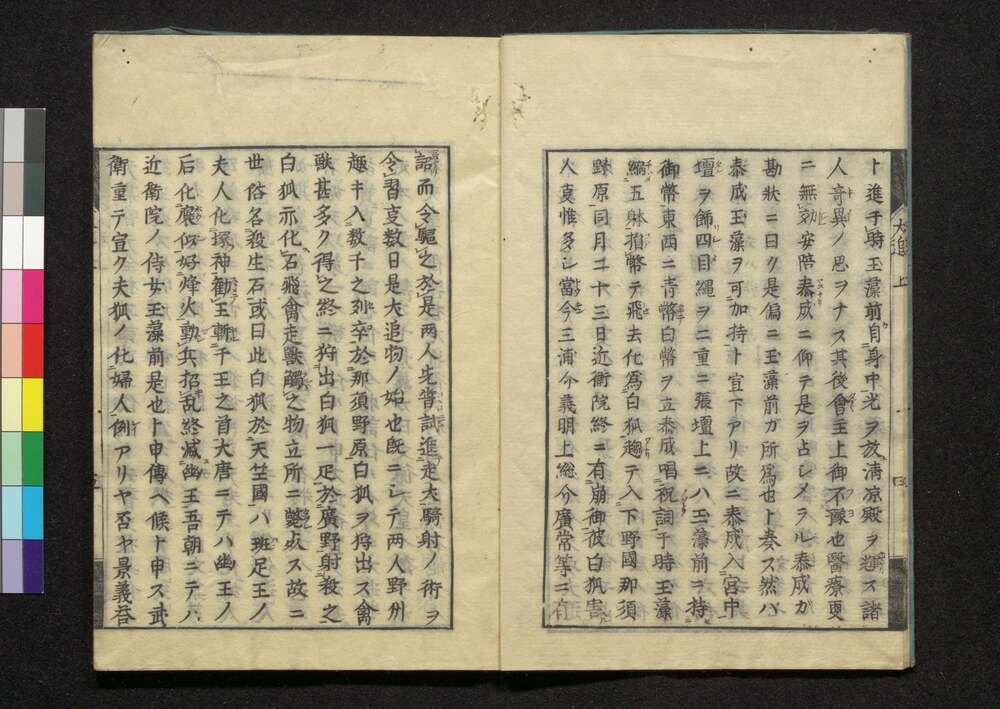 ト進于時玉藻前自身中光ヲ放清凉殿ヲ廻ス諸
人奇異ノ思ヲナス其後會主上御不豫也醫療更
ニ無効安陪泰成ニ仰テ是ヲ占レメラル泰成カ
勘狀ニ曰ク是偏ニ玉藻前カ所為也ト奏ス然ハ
泰成玉藻ヲ可加持ト宣下アリ故ニ泰成入宮中
壇ヲ飾四目繩ヲ二重ニ張壇上ニハ玉藻前ニ持
御幣東西ニ青幣白幣ヲ立泰成唱祝詞于時玉藻
縮五躰損幣テ飛去化為白狐趨テ入下野國那須
野原同月二十三日近衛院終ニ有崩御彼白狐害
人夐惟多シ當今三浦介義明上總介廣常等ニ有
詔而令驅之於是兩人先嘗試進走犬騎射ノ術ヲ
令習夐数日是犬追物ノ始也既ニシテ兩人野州
趣キ入数千之列卒於那須野原白狐ヲ狩出ス禽
獸甚多ク得之終ニ狩出白狐一疋於廣野射殺之
白狐亦化石飛禽走獸觸之物立所ニ斃ス故ニ
世俗名殺生石或曰此白狐於天竺國ハ班足王ノ
夫人化塚神勸王斬千王之首大唐ニテハ幽王ノ
后化褒似好烽火動兵招乱終滅幽王吾朝ニテハ
近衛院ノ侍女玉藻前是也ト申傳ヘ候ト申ス武
衛重テ宣ク夫狐ノ化婦人例アリヤ否ヤ景義荅
犬追 上
四